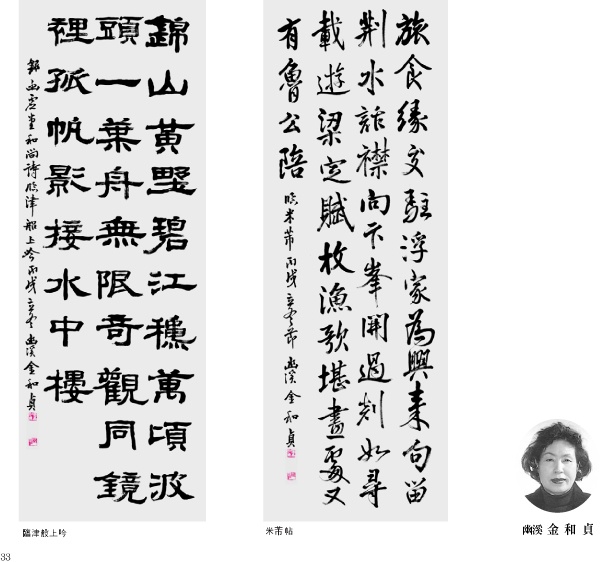 錦山黃野碧江穩萬頃波
頭一葉舟無限奇觀同鏡
裡孤帆影接水中樓
錄幽虛堂和尙詩臨津船上吟丙戌立冬幽溪金和貞
臨津般上吟
旅食緣交駐浮家為興來句留
荆水話襟向卞峯開過剡如尋
載遊梁定賦枚漁歌堪畫處又
有魯公陪
臨米芾丙戌立冬節幽溪金和貞
米芾帖
幽溪 金和貞
33